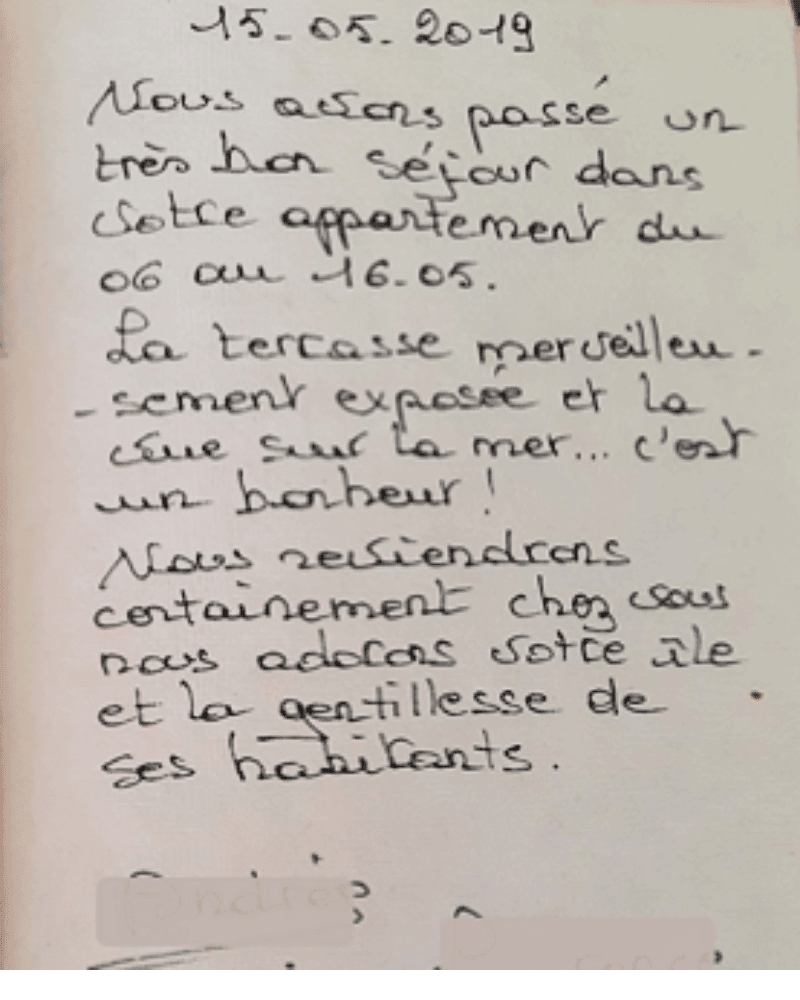 15-05.2019
Nous avons passé un
très bon séjour dans
votre appartement du
06 au 16-05.
La terrasse merveilleu-
-sement exposée et la
vue sur la mer... c'est
un bonheur!
Nous reviendrons
certainement chez vous
nous adorons votre île
et la gentillesse de
ses habitants.